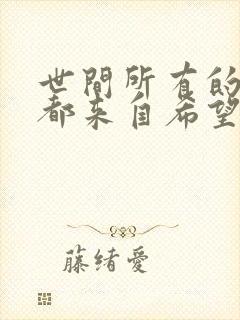 世間所有的
都来自希望
藤绪愛